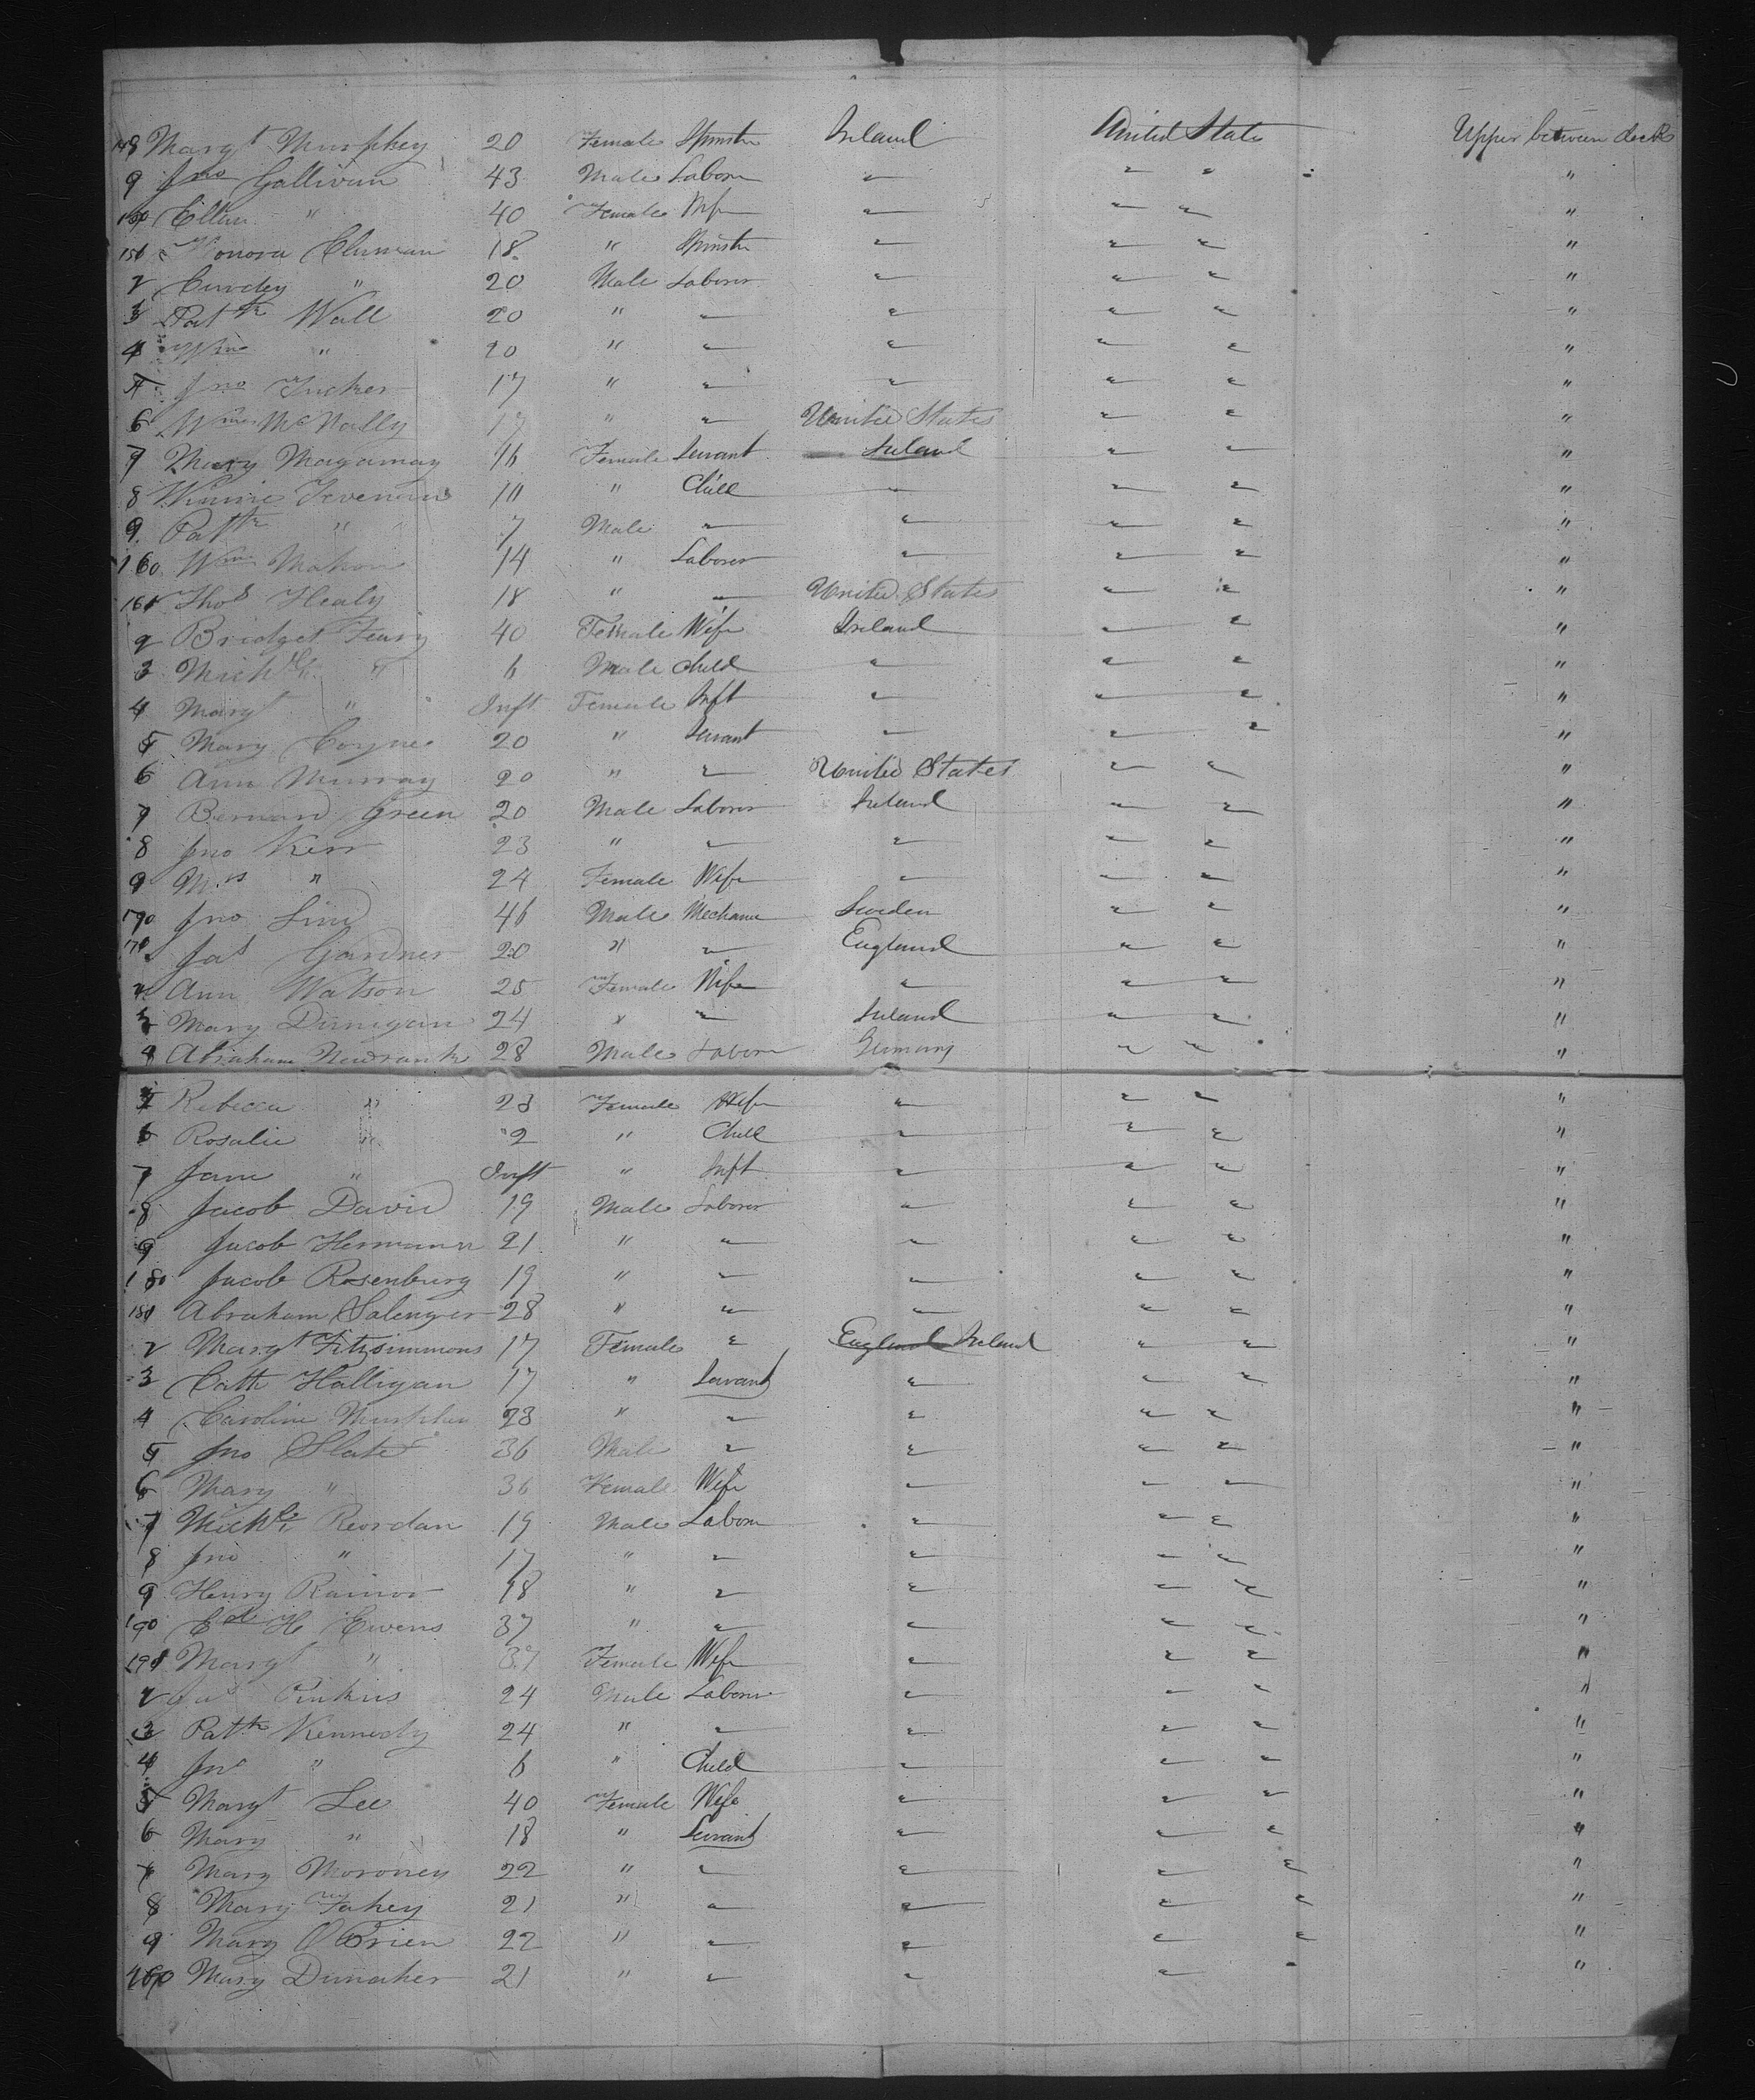 148 Margt Murphey 20 Female Spinstr Ireland United State Upper between decks
9 Jno Gallivan 43 Male Labore " " " "
150 Ellen " 40 Female Wife " " " "
151 Honora 18 " Spinstr " " " "
2 " 20 Male Laborer " " " "
3 Patk Wall 20 " " " " " "
4 Wm " 20 " " " " " "
5 Jno Tucker 17 " " " " " "
6 Wm McNally 17 " " United States " " "
7 Mary 16 Female Servant Ireland " " "
8 Winnie 10 " Child " " " "
9 Patk " 7 Male " " " " "
160 Wm Mahon 14 " Laborer " " " "
161 Thos Healy 18 " " United States " " "
2 Bridget 40 Female Wife Ireland " " "
3 Michl " 6 Male Child " " " "
4 Margt " Inft Female Inft " " " "
5 Mary Coyne 20 " Servant " " " "
6 Ann Murray 20 " " United States " " "
7 Bernard Green 20 Male Laborer Ireland " " "
8 Jno Kerr 23 " " " " " "
9 Mrs " 24 Female Wife " " " "
170 Jno Lind 46 Male Mechanic Sweden " " "
171 Jas Gardner 20 " " England " " "
2 Ann Watson 25 Female Wife " " " "
3 Mary Dunigan 24 " " Ireland " " "
4 Abraham 28 Male Labore Germany " " "
5 Rebecca " 23 Female Wife " " " "
6 Rosalie " 2 " Child " " " "
7 Jane " Inft " Inft " " " "
8 Jacob David 19 Male Laborer " " " "
9 Jacob Hermann 21 " " " " " "
180 Jacob Rosenburg 19 " " " " " "
181 Abraham Salenger 28 " " " " " "
2 Margt Fitzsimmons 17 Female " England Ireland " " "
3 Cath Halligan 17 " Servant " " " "
4 Caroline 23 " " " " " "
5 Jno Slater 36 Male " " " " "
6 Mary " 36 Female Wife " " " "
7 Michl Reordan 19 Male Labore " " " "
8 Jno " 17 " " " " " "
9 Henry Rainor 18 " " " " " "
190 Ed H Ewens 37 " " " " " "
191 Margt " 37 Female Wife " " " "
2 24 Male Laborer " " " "
3 Patk Kennedy 24 " " " " " "
4 Jno " 6 " Child " " " "
5 Margt Lee 40 Female Wife " " " "
6 Mary " 18 " Servant " " " "
7 Mary Moroney 22 " " " " " "
8 Mary Fahey 21 " " " " " "
9 Mary OBrien 22 " " " " " "
Mary 21 " " " " " "